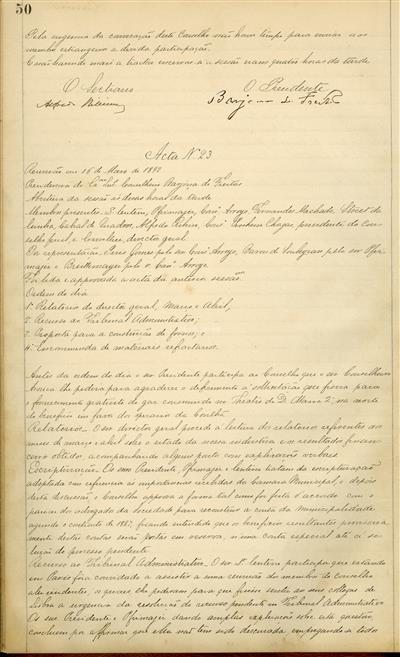 50
Pela urgencia da convocação deste Conselho não houve tempo para enviar aos
membros estrangeiros a devida participação.
E não havendo mais a tractar encerrou-se a sessão eram quatro horas da tarde
O Secretario O Presidente
Barjona de Freitas
Acta Nº 23
Reunião em 16 de Maio de 1892
Presidencia do Conselheiro Barjona de Freitas
Abertura da sessão ás duas horas da tarde
Membros presentes: S. Centeno, Pfirmajer, Arroyo, Fernandes Machado,
Cunha, Alfredo Ribeiro, Pinheiro Chagas presidente do Con-
selho fiscal, e Conselheiro director geral
Por representação: Pires Gomes pelo Arroyo, Barão de pelo snr Pfir-
majer e pelo Arroyo
Foi lida e approvada a acta da anterior sessão.
Ordem do dia
1º Relatorio do director geral, Março e Abril;
2º Recurso ao Tribunal Administrativo;
3º Proposta para a construcção de fornos; e
4º Encommenda de materiaes refractarios.
Antes da ordem do dia o snr Presidente participa ao Conselho que o snr Conselheiro
lhe pedira para agradecer o deferimento á solicitação que fizera para
o fornecimento gratuito de gaz consumido no Theatro de D. Maria 2ª, na noite
do beneficio em favor dos operarios da Covilhã.
Relatorios. O snr director geral procede á leitura dos relatorios referentes aos
mezes de março e abril sobre o estado da nossa industria e os resultados finan-
ceiros obtidos, acompanhando alguns pontos com explicações verbaes
Escripturação. Os snrs Presidente, Pfirmajer e Centeno tratam da escripturação
adoptada em referencia ás importancias recebidas da Camara Municipal, e depois
desta discussão, o Conselho approva a forma tal como foi feita d'accordo com o
parecer do advogado da Sociedade para
segundo o contracto de 1887, ficando entendido que os beneficios resultantes provisoria-
mente destas contas serão postos em reserva, n'uma conta especial até á so-
lução do processo pendente
Recurso ao Tribunal Administrativo. O snr Centeno participa que estando
em Paris fôra convidado a assistir a uma reunião dos membros do conselho
alli residentes, os quaes lhe pediram para que fizesse sentir aos seus collegas de
Lisboa a urgencia da resolução do recurso pendente no Tribunal Administrativo
Os snrs Presidente e Pfirmajer dando amplas explicações sobre esta questão,
concluem por affirmar que ella não tem sido descurada empregando-se todos